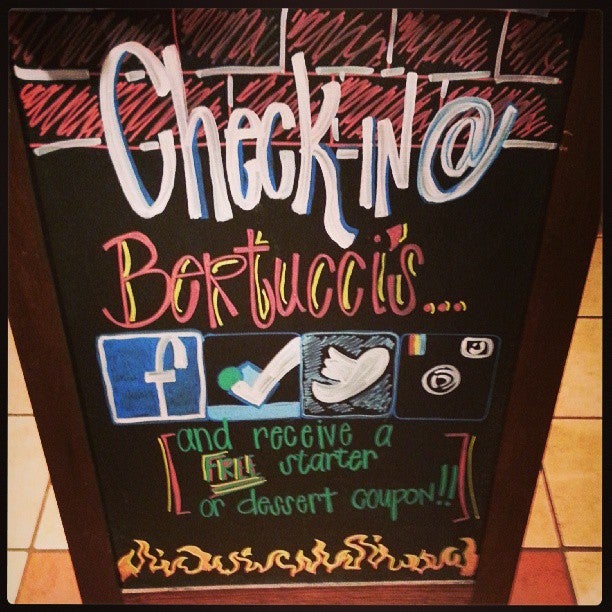 Check-IN @
Bertucci's...
f
and receive a
FREE starter
or dessert coupon!!